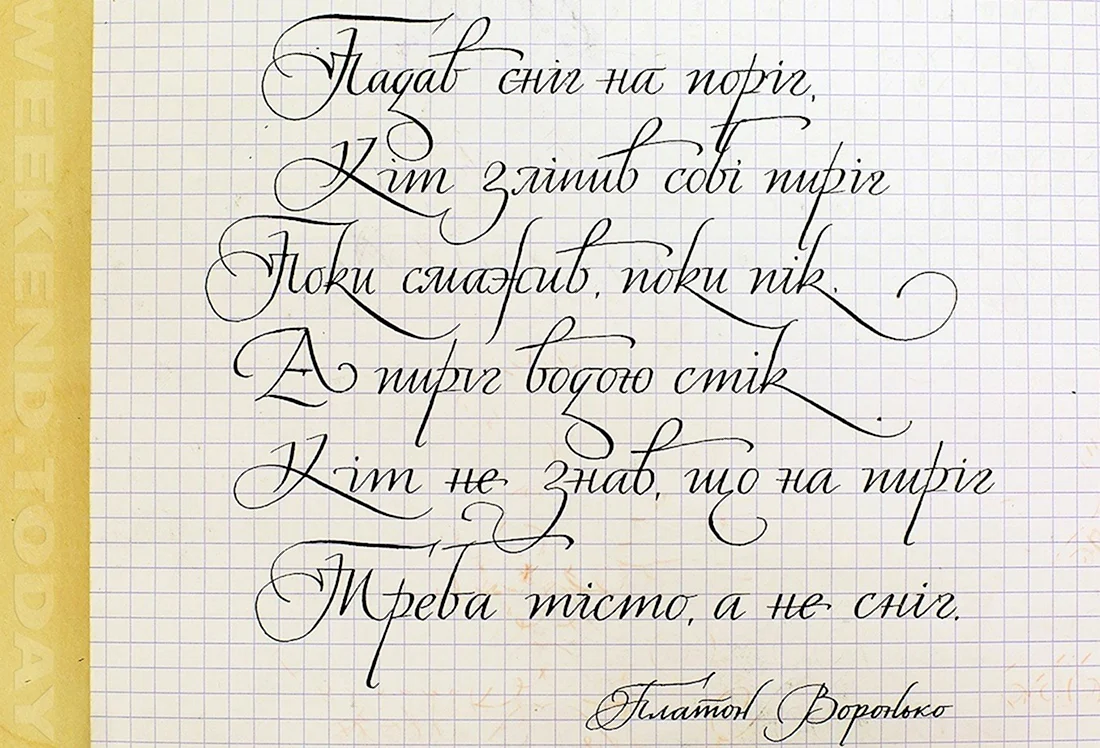 WEEKEND.TODAY
Падав сніг на поріг,
Кіт зліпив собі пиріг
Поки смажив, поки пік.
А пиріг водою стік.
Кіт не знав, що на пиріг
Треба тісто, а не сніг.
Платон Воронько